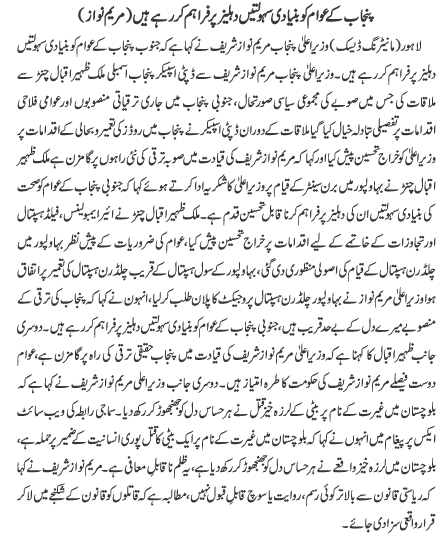 پنجاب کے عوام کو بنیادی سہولتیں دہلیز پر فراہم کر رہے ہیں (مریم نواز)
لاہور (مانیٹرنگ ڈیسک) وزیراعلیٰ پنجاب مریم نواز شریف نے کہا ہے کہ جنوب پنجاب کے عوام کو بنیادی سہولتیں
دہلیز پر فراہم کر رہے ہیں۔ وزیراعلیٰ پنجاب مریم نواز شریف سے ڈپٹی اسپیکر پنجاب اسمبلی ملک ظہیر اقبال چنڑ سے
ملاقات کی جس میں صوبے کی مجموعی سیاسی صورتحال، جنوبی پنجاب میں جاری ترقیاتی منصوبوں اور عوامی فلاحی
اقدامات پر تفصیلی تبادلہ خیال کیا گیا ملاقات کے دوران ڈپٹی اسپیکر نے پنجاب میں روڈز کی تعمیر و بحالی کے اقدامات پر
وزیراعلیٰ کو خراج تحسین پیش کیا اور کہا کہ مریم نواز شریف کی قیادت میں صوبہ ترقی کی نئی راہوں پر گامزن ہے ملک ظہیر
اقبال چنڑ نے بہاولپور میں برن سینٹر کے قیام پر وزیراعلیٰ کا شکریہ ادا کرتے ہوئے کہا کہ جنوبی پنجاب کے عوام کو صحت
کی بنیادی سہولتیں ان کی دہلیز پر فراہم کرنا قابل تحسین قدم ہے۔ ملک ظہیر اقبال چنڑ نے ائیر ایمبولینس، فیلڈ ہسپتال
اور تجاوزات کے خاتمے کے لیے اقدامات پر خراج تحسین پیش کیا، عوام کی ضروریات کے پیش نظر بہاولپور میں
چلڈرن ہسپتال کے قیام کی اصولی منظوری دی گئی، بہاولپور کے سول ہسپتال کے قریب چلڈرن ہسپتال کی تعمیر پر اتفاق
ہوا وزیراعلیٰ مریم نواز نے بہاولپور چلڈرن ہسپتال پروجیکٹ کا پلان طلب کر لیا، انہوں نے کہا کہ پنجاب کی ترقی کے
منصوبے میرے دل کے بے حد قریب ہیں، جنوبی پنجاب کے عوام کو بنیادی سہولتیں دہلیز پر فراہم کر رہے ہیں۔ دوسری
جانب ظہیر اقبال کا کہنا ہے کہ وزیراعلیٰ مریم نواز شریف کی قیادت میں پنجاب حقیقی ترقی کی راہ پر گامزن ہے، عوام
دوست فیصلے مریم نواز شریف کی حکومت کا طرہ امتیاز ہیں۔ دوسری جانب وزیراعلیٰ مریم نواز شریف نے کہا ہے کہ
بلوچستان میں غیرت کے نام پر بیٹی کے لرزہ خیز قتل نے ہر حساس دل کو جھنجھوڑ کر رکھ دیا۔ سماجی رابطہ کی ویب سائٹ
ایکس پر پیغام میں انہوں نے کہا کہ بلوچستان میں غیرت کے نام پر ایک بیٹی کا قتل پوری انسانیت کے ضمیر پر حملہ ہے،
بلوچستان میں لرزہ خیز واقعے نے ہر حساس دل کو جھنجھوڑ کر رکھ دیا ہے، یہ ظلم نا قابل معافی ہے۔ مریم نواز شریف نے کہا
کہ ریاستی قانون سے بالاتر کوئی رسم، روایت یا سوچ قابل قبول نہیں، مطالبہ ہے کہ قاتلوں کو قانون کے شکنجے میں لا کر
قرار واقعی سزا دی جائے۔